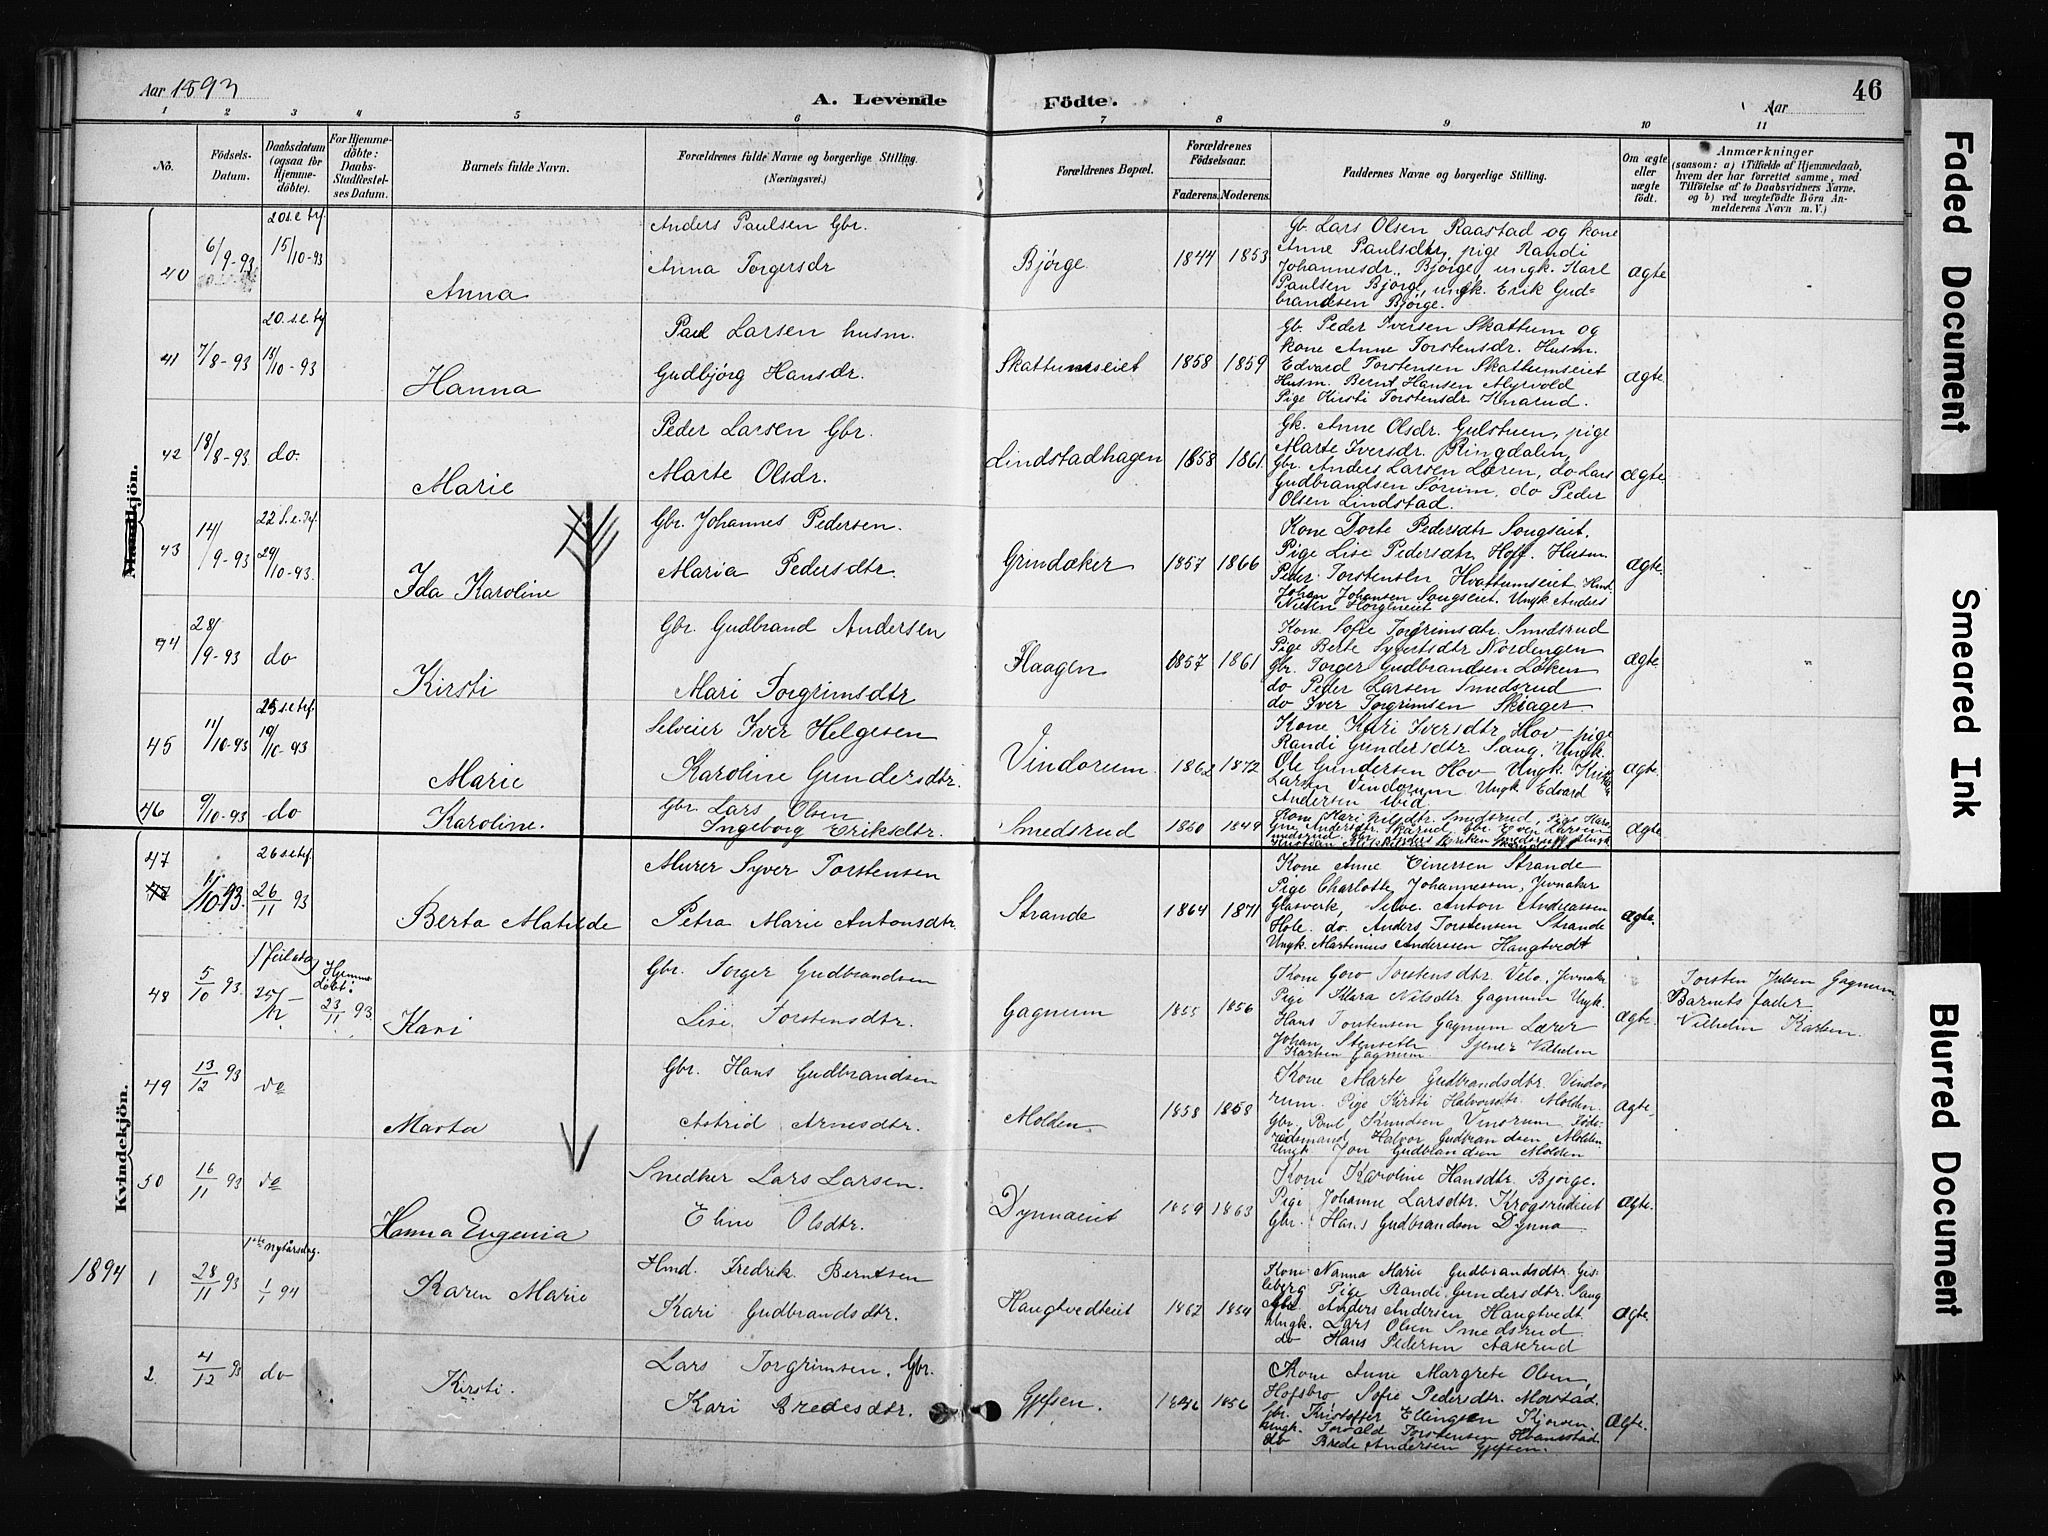 Aar 1893
A. Levende Födte.
Aar
46
1 2 3 4 5 6 7 8 9 10 11
No.
Födsels-Datum.
Daabsdatum (ogsaa for Hjemmedöbte).
For Hjemmedöbte: Daabs-Stadfæstelses Datum.
Barnets fulde Navn.
Forældrenes fulde Navne og borgerlige Stilling. (Næringsvei.)
Forældrenes Bopæl.
Forældrenes Födselsaar.
Faderens. Moderens.
Faddernes Navne og borgerlige Stilling.
Om ægte eller uægte födt.
Anmærkninger
(saasom: a) i Tilfælde af Hjemmedaab, hvem der har forrettet samme, med Tilföielse af to Daabsvidners Navne, og b) ved uægtefödte Börn Anmelderens Navn m. V.)
Kvindekjön.
40 6/9-93 20 s.e.trf. 15/10-93
Anna
Anders Paulsen Gbr.
Anna Torgersdr
Bjørge 1844 1853
Gb. Lars Olsen Raastad og kone
Anne Paulsdtr, pige Randi
Johannesdr. Bjørge, ungk. Karl
Paulsen Bjørge, ungk. Erik Gud=
brandsen Bjørge.
ægte
41 7/8-93 20. s.e.trf 15/10-93
Hanna
Paul Larsen husm.
Gudbjørg Hansdr.
Skattumseiet 1858 1859
Gb. Peder Iversen Skattum og
kone Anne Torstensdr. Husm.
Edvard Torstensen Skattumseiet
Husm. Bernt Hansen Myrvold
Pige Kirsti Torstensdr Knarud.
ægte
42 18/8-93 do.
Marie
Peder Larsen Gbr.
Marte Olsdr.
Lindstadhagen 1858 1861
Gk. Anne Olsdr. Gulstuen, pige
Marte Iversdr. Ringdalen,
Gbr. Anders Larsen Læren, do Lars
Gudbrandsen Sørum, do Peder
Olsen Lindstad.
ægte
43 14/9-93 22 S.e.Trf. 29/10-93.
Ida Karoline
Gbr. Johannes Pedersen.
Maria Pedersdtr.
Grindaker 1857 1866
Kone Dorte Pedersdtr Sougseiet.
Pige Lise Pedersdtr Hoff. Husm.
Peder Torstensen Hvattumseiet Husm.
Johan Johansen Sougseiet. Ungk Anders
Nielsen Horgeneiet
ægte.
44 28/9-93 do
Kirsti
Gbr. Gudbrand Andersen
Mari Torgrimsdtr
Flaagen 1857 1861
Kone Sofie Torgrimsdtr. Smedsrud
Pige Berte Sivertsdtr Nordengen
Gbr. Torger Gudbrandsen Løken
do Peder Larsen Smedsrud
do Iver Torgrimsen Skiager.
ægte
45 11/10-93 25 s.e.trf. 19/10-93
Marie
Selveier Iver Helgesen
Karoline Gundersdtr.
Vindorum 1862 1872
Kone Kari Iversdtr Hov pige
Randi Gundersdtr Saug. Ungk.
Ole Gundersen Hov Ungk
Larsen Vindorum Ungk Edvard
Andersen ibid.
ægte.
46 9/10-93 do
Karoline.
Gbr. Lars Olsen
Ingeborg Eriksdtr.
Smedsrud 1850 1849
Kone Mari Smedsrud, Pige
ægte
47 1/10-93. 26 s.e.trf. 26/11 93
Berta Matilde
Murer Syver Torstensen
Petra Marie Antonsdtr.
Strande 1864 1871
Kone Anne Einersen Strande
Pige Charlotte Johannessen, Jevnaker
Glasverk, Selve. Anton Andreassen
Hole. do. Anders Torstensen Strande
Ungk. Martinius Anderssen Haugtvedt
ægte.
48 5/10 93 1 Juledag 25/12 Hjemmedöbt: 23/11 93
Kari
Gbr. Torger Gudbrandsen
Lise Torstensdtr.
Gagnum 1855 1856
Kone Goro Torstensdtr. Velo, Jevnaker
Pige Klara Nilsdtr Gagnum Ungk.
Hans Torstensen Gagnum Lærer
Johan Stenseth Tjener Vilhelm
Karlsen Gagnum.
ægte.
Torsten Julsen Gagnum
Barnets fader
Vilhelm Karlsen
49 13/12 93 do
Marta
Gbr. Hans Gudbrandsen
Astrid Arnesdtr.
Molden 1858 1858
Kone Marte Gudbrandsdtr. Vindo-
rum. Pige Kirsti Halvorsdtr. Molden.
Gbr. Paul Knudsen Vinorum. Föde-
raadsmand Halvor Gudbrandsen Molden.
Ungk. Jon Gudbrandsen Molden
ægte.
50 16/11 93 do
Hanna Eugenia
Snedker Lars Larsen.
Eline Olsdtr.
Dynnaeiet 1859 1863
Kone Karoline Hansdtr. Bjørge.
Pige Johanne Larsdtr. Krogsrudeiet
Gbr. Hans Gudbrandsen Dynna
ægte.
1894
1 28/11 93 1ste nytårsdag 1/1 94
Karen Marie
Hmd. Fredrik Berntsen
Kari Gudbrandsdtr.
Haugtvedteiet 1862 1854
Kone Nanna Marie Gudbrandsdtr. Gis-
leberg Pige Randi Gundersdtr. Saug
Gbr. Anders Andersen Haugtvedt.
Ungk. Lars Olsen Smedsrud.
do Hans Pedersen Aaserud
ægte.
2. 4/12 93 do
Kirsti.
Lars Torgrimsen, Gbr.
Kari Bredesdtr.
Gjefsen. 1846 1856
Kone Anne Margrete Olsen,
Hofsbro, Sofie Pedersdtr. Morstad.
Gbr. Kristoffer Ellingsen Kjorsen.
Ungk. Torvald Torstensen Hvamstad.
do Brede Andersen Gjefsen.
ægte.
Faded Document
Smeared Ink
Blurred Document